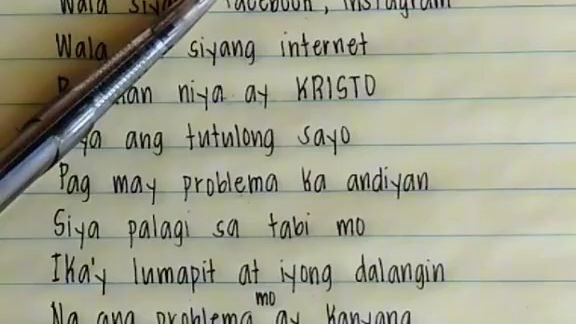 Wala Facebook, Instagram
Wala siyang internet
niya ay KRISTO
ang tutulong sayo
Pag may problema ka andiyan
Siya palagi sa tabi mo
Ika'y lumapit at iyong dalangin
mo
Na ang problema ay kanyang